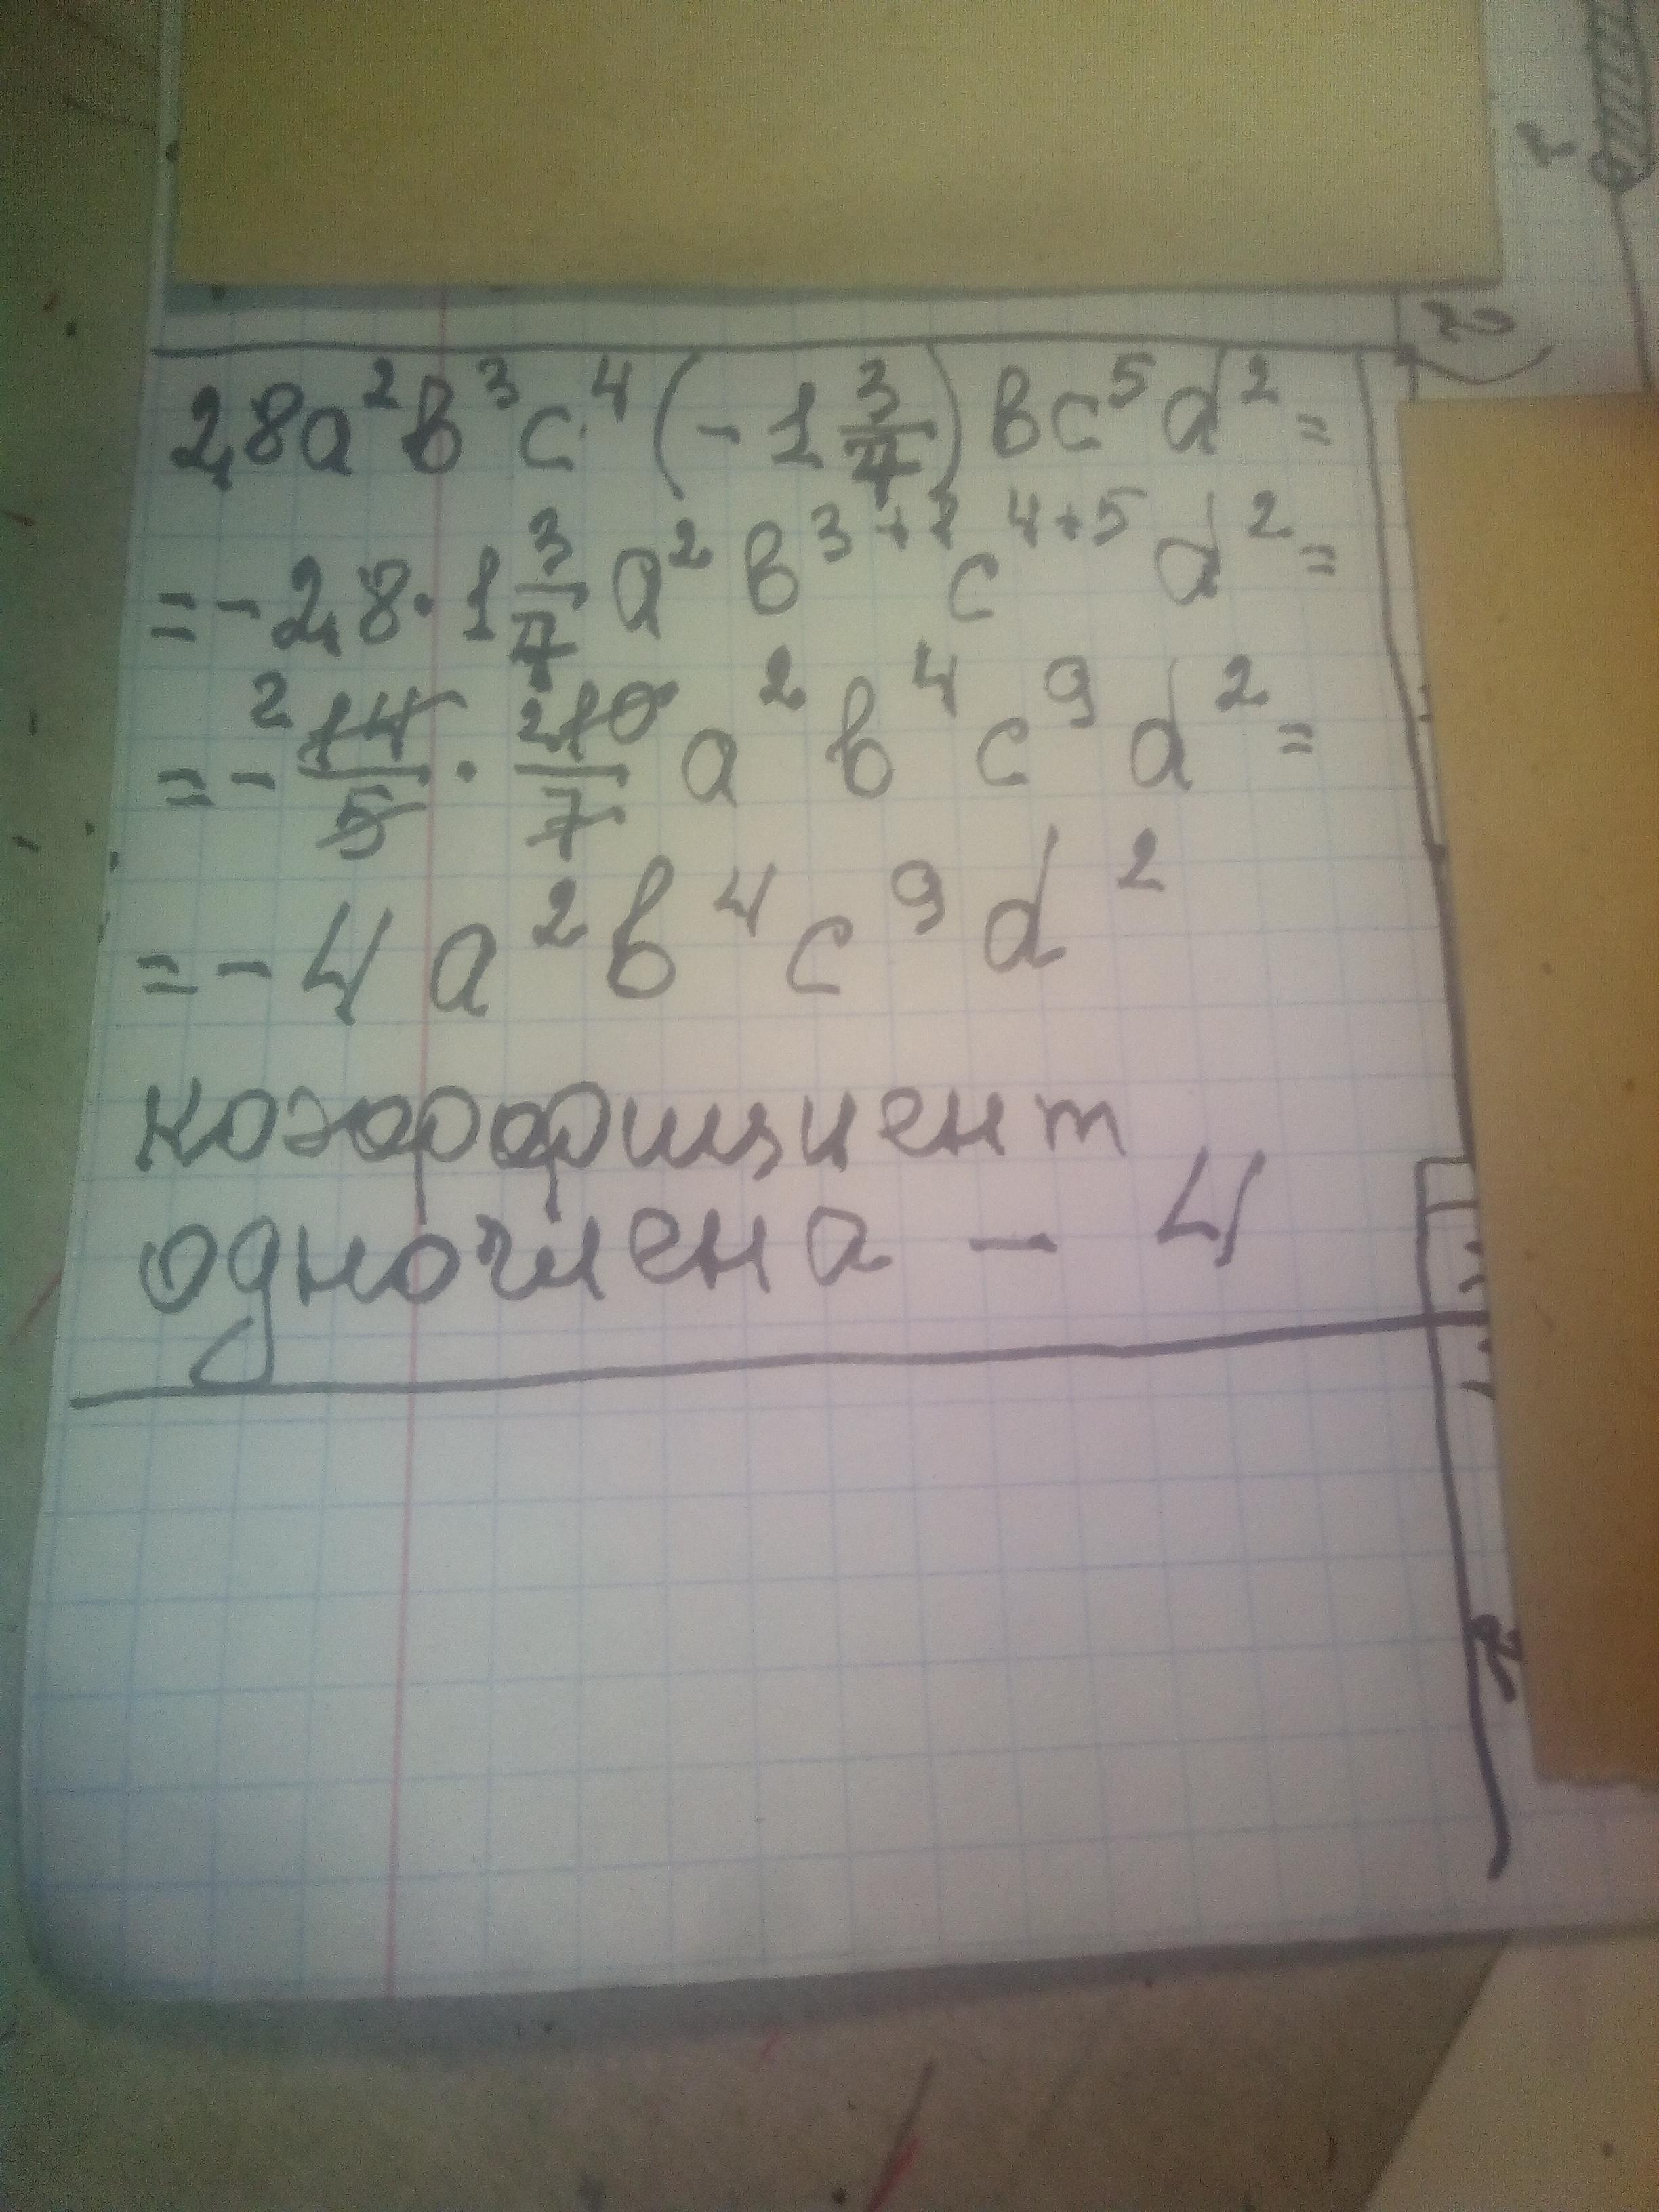 2,8a²b³c⁴(-1 3/7)bc⁵d² =
= - 2,8 · 1 3/7 a² b³⁺¹ c⁴⁺⁵ d² =
= - ² 14/5 · ² 10/7 a² b⁴ c⁹ d² =
= - 4 a² b⁴ c⁹ d²
коэффициент
одночлена - 4